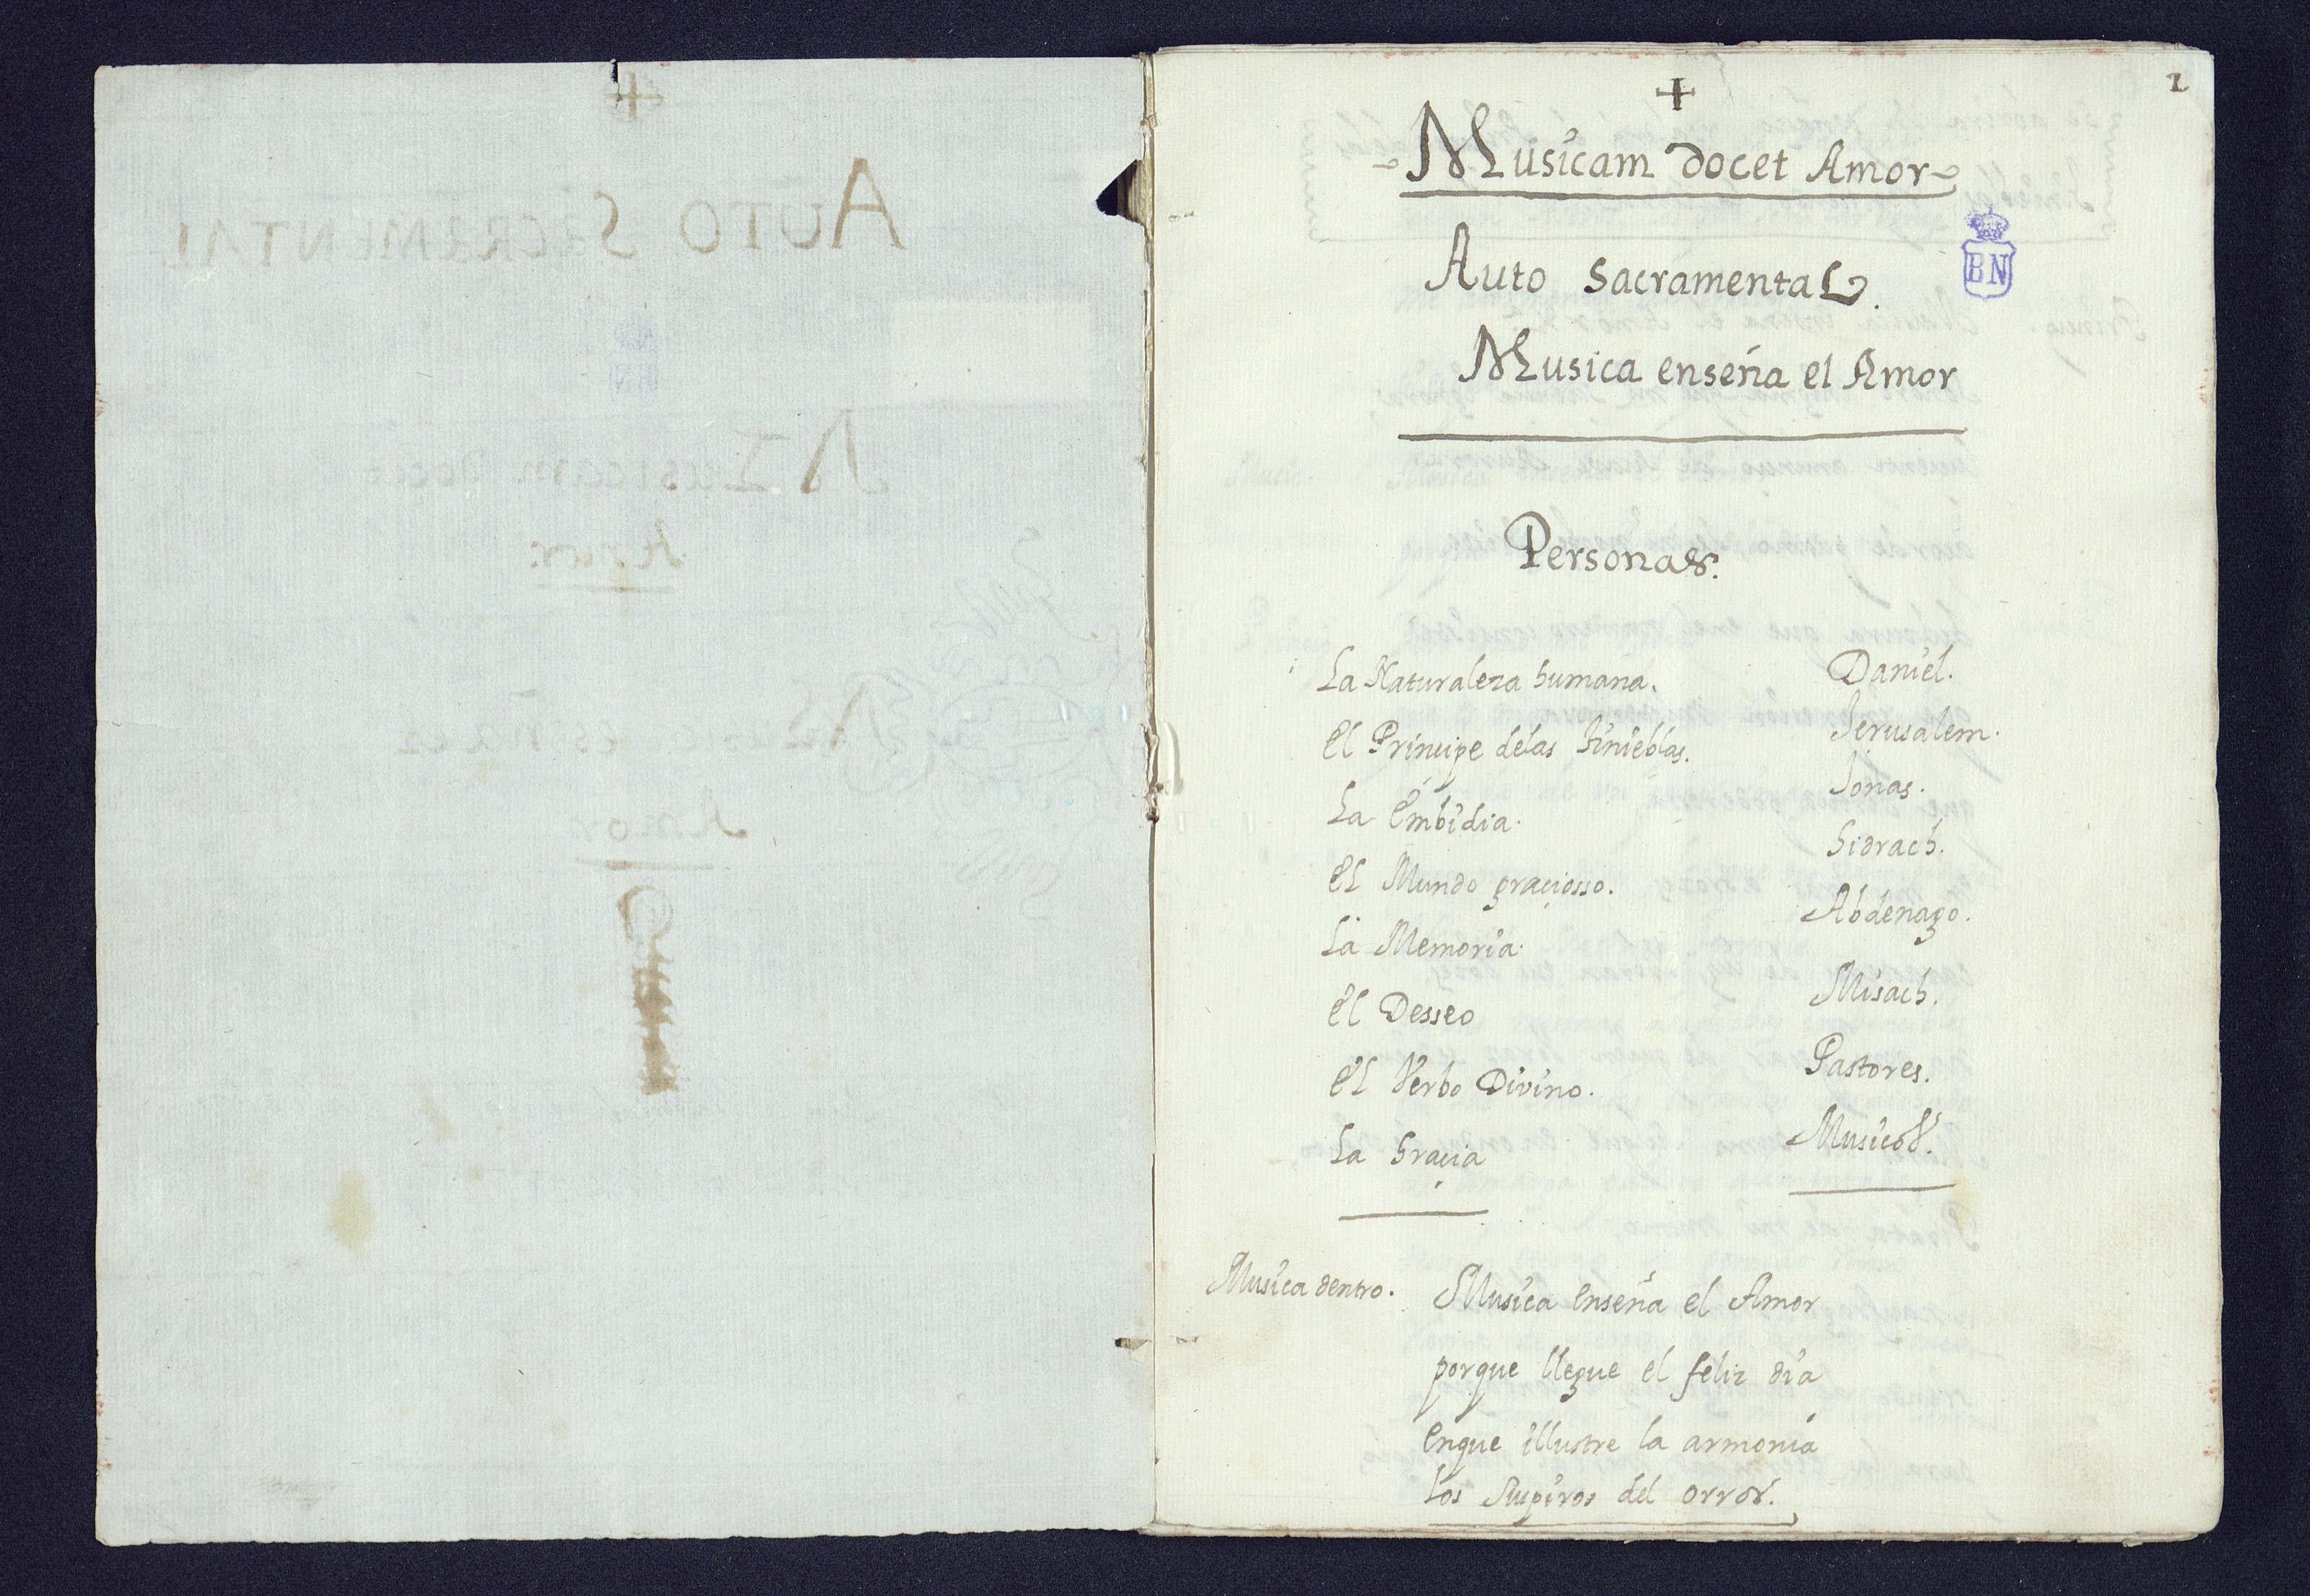 1
+
Musicam docet Amor
Auto Sacramental.
BN
Musica enseña el Amor
Personas.
La Naturaleza humana.
El Principe delas tinieblas.
La Embidia.
El Mundo graçiosso.
La Memoria.
El Desseo
El Verbo Divino.
La Graçia
Daniel.
Jerusalem.
Jonas.
Sidrach.
Abdenago.
Misach.
Pastores.
Musicos.
Musica dentro. Musica enseña el Amor
porque llegue el feliz dia
enque illustre la armonia
los suspiros del orror.